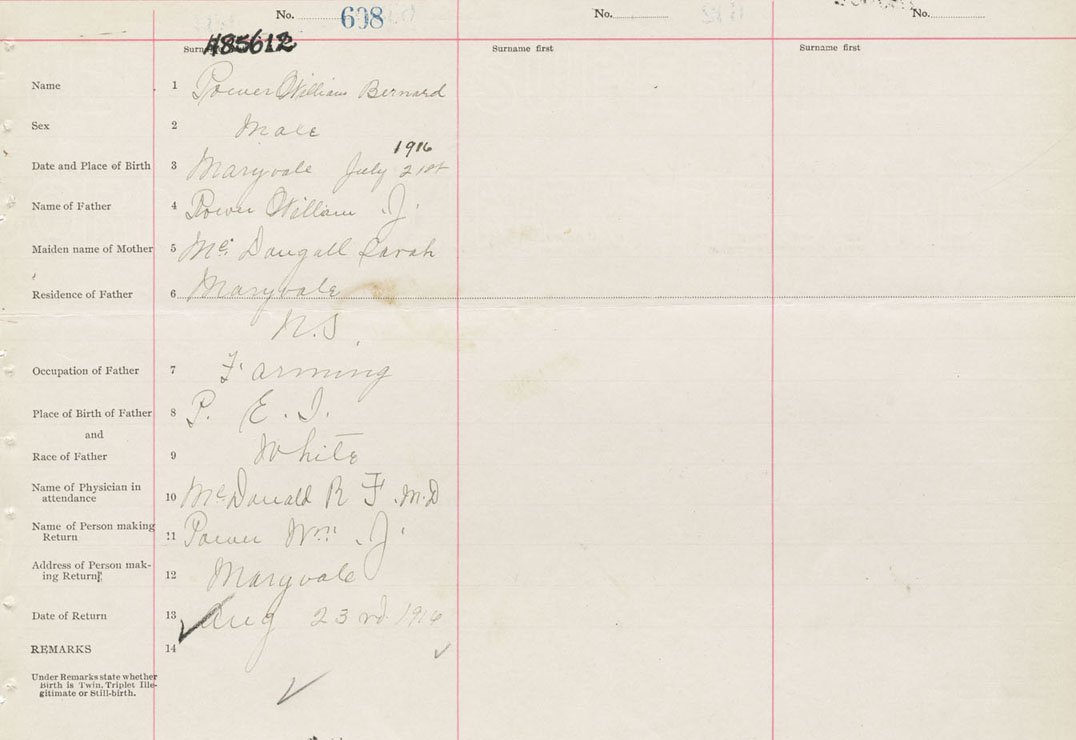 No. 608 No. No.
Surname H85612 Surname first Surname first
Name 1 Power William Bernard
Sex 2 Male
1916
Date and Place of Birth 3 Maryvale July 21st
Name of Father 4 Power William J.
Maiden name of Mother 5 Mc Dougall Sarah
Residence of Father 6 Maryvale
N.S.
Occupation of Father 7 Farming
Place of Birth of Father 8 P. E. I.
and
Race of Father 9 White
Name of Physician in
attendance 10 McDonald R F. M.D
Name of Person making
Return 11 Power Wm. J.
Address of Person mak-
ing Return 12 Maryvale
Date of Return 13 Aug 23rd 1916
REMARKS 14
Under Remarks state whether
Birth is Twin, Triplet Ille-
gitimate or Still-birth.